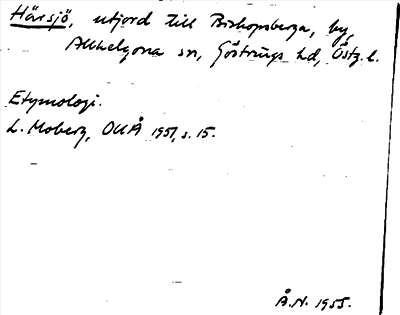 Härsjö, utjord till Biskopsberga, by,
Allhelgona sn, Göstrings hd, Östg. l.
Etymologi.
L. Moberg, OUÅ 1951, s. 15.
Å.N. 1955.